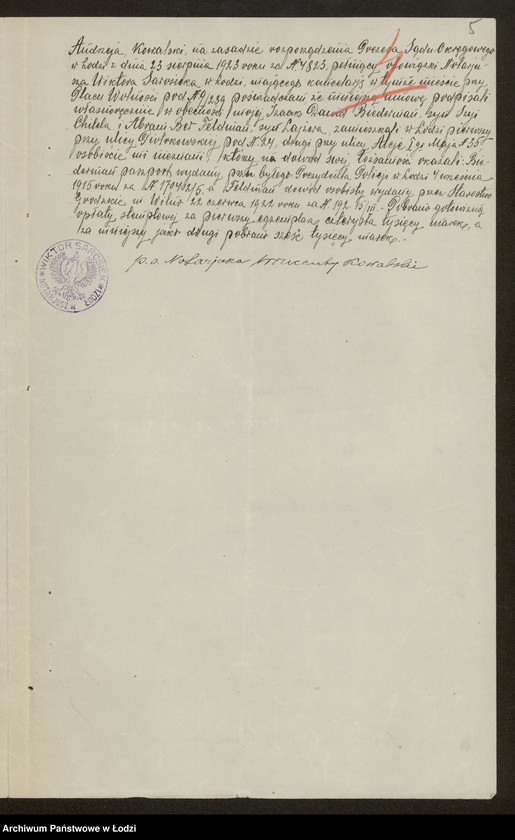 5
Andrzeja Kowalski, na zasadzie rozporządzenia Prezesa Sądu Okręgowego
w Łodzi z dnia 23 sierpnia 1923 roku za № 4823, pełniący obowiązki Notarju-
sza Wiktora Sarosieka w Łodzi, mającego kancelarję w tymże mieście przy
Placu Wolności pod № poświadczam że niniejszą umowę podpisali
własnoręcznie w obecności mojej Izaak Dawid Biederman, syn
Chilela i Abram Ber Feldman, syn Lajzera, zamieszkali w Łodzi pierwszy
przy ulicy Piotrkowskiej pod № 24, drugi przy ulicy Aleje I go Maja № 35
osobiście mi nieznani, którzy na dowód swej tożsamości okazali: Bie-
derman paszport wydany przez byłego Prezydenta Policji w Łodzi 4 września
1915 roku za № a Feldman dowód osobisty wydany przez Starostwo
Grodzkie m. Wilno 22 czerwca 1922 roku za № 192 Pobrano gotowizną
opłaty stemplowej za pierwszy egzemplarz czterysta tysięcy marek, a
za niniejszy jako drugi pobrano sześć tysięcy marek.
p.o. Notarjusza Kowalski
WIKTOR SAROSIEK
NOTARJUSZ w ŁODZI
Archiwum Państwowe w Łodzi